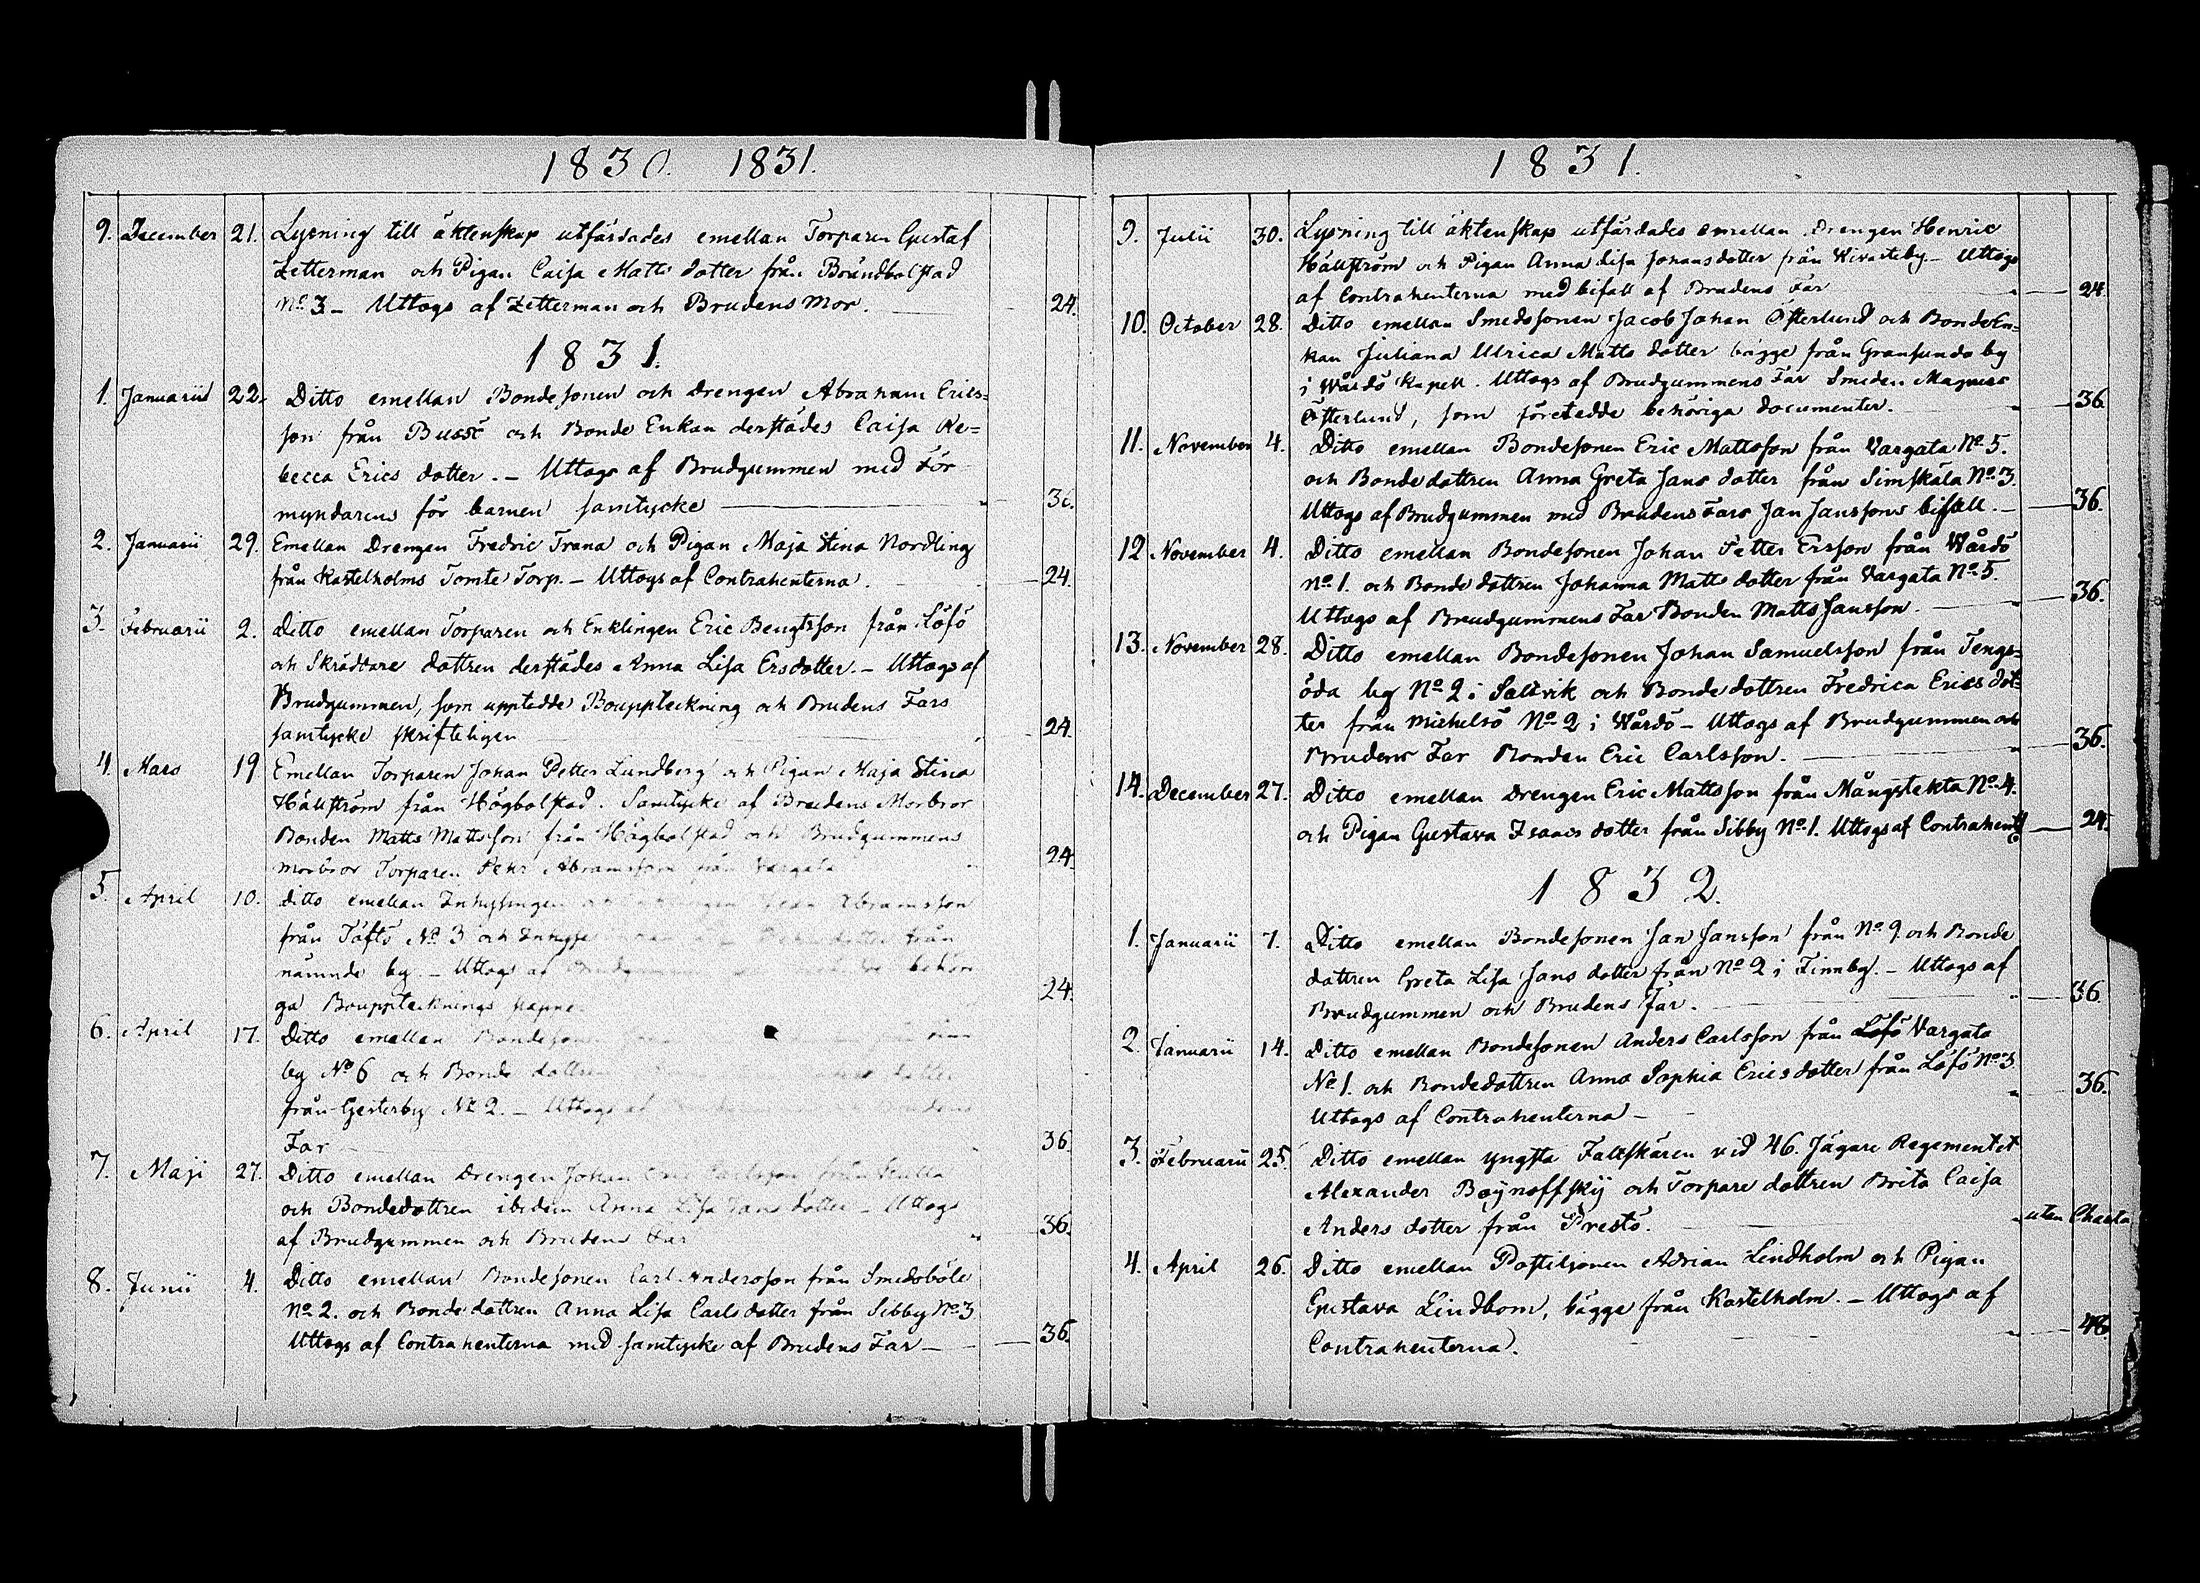 1830. 1831.
9. December 21. Lysning till äktenskap utfärdades emellan Torparen Gustaf
Zetterman och Pigan Caisa Matts dotter från Brändbolstad
No 3 – Uttogs af Zetterman och Brudens Mor. 24.
1831.
1. Januarii 22. Ditto emellan Bondesonen och Drengen Abraham Erics=
son från Bussö och Bonde Enkan derstädes Caisa Re=
becca Erics dotter. – Uttogs af Brudgummen med För
myndarens för barnen samtycke 36.
2. Januarii 29. Emellan Drengen Fredric Trana och Pigan Maja Stina Nordling
från Kastelholms Tomte Torp. – Uttogs af Contrahenterna. 24.
3. Februarii 2. Ditto emellan Torparen och Enklingen Eric Bengtsson från Löfö
och Skräddare dottren derstädes Anna Lisa Ersdotter. – Uttogs af
Brudgummen, som upptedde Bouppteckning och Brudens Fars
samtycke skrifteligen 24.
4. Mars 19 Emellan Torparen Johan Petter Lundberg och Pigan Maja Stina
Hällström från Högbolstad. Samtycke af Brudens Morbror
Bonden Matts Mattsson från Högbolstad och Brudgummens
morbror Torparen Pehr Abramsson från Vargata 24.
5. April 10. Ditto emellan Inhysingen Abramsson
från Töftö No 3 och Inhyses dotter från
nämnde by. – Uttogs af behöri
ga Bouppteknings papper 24.
6. April 17. Ditto emellan Bondesonen
by No 6 och Bonde dottren dotter
från Gesterby No 2. – Uttogs af Brudens
Far 36.
7. Maji 27. Ditto emellan Drengen Johan Carlsson från
och Bondedottren ibidem Anna Lisa Jans dotter – Uttogs
af Brudgummen och Brudens Far 36.
8. Junii 4. Ditto emellan Bondesonen Carl Andersson från Smedsböle
No 2. och Bonde dottren Anna Lisa Carls dotter från Sibby No 3
Uttogs af Contrahenterna med samtycke af Brudens Far – 36.
1831.
9. Julii 30. Lysning till äktenskap utfärdades emellan Drengen Henric
Hällström och Pigan Anna Lisa Johansdotter från Wivasteby – Uttogs
af Contrahenterna med bifall af Brudens Far 24.
10. October 28. Ditto emellan Smedssonen Jacob Johan Österlund och BondeEn=
kan Juliana Ulrica Matts dotter bägge från Gransunda by
i Wårdö Kapell. Uttogs af Brudgummens Far Smeden Magnus
Österlund, som företedde behöriga documenter. 36.
11. November 4. Ditto emellan Bondesonen Eric Mattsson från Vargata No 5.
och Bondedottren Anna Greta Jans dotter från Simskäla No 3.
Uttogs af Brudgummen med Brudens Fars Jan Janssons bifall. 36.
12 November 4. Ditto emellan Bondesonen Johan Petter Ersson från Wårdö
No 1. och Bonde dottren Johanna Matts dotter från Vargata No 5.
Uttogs af Brudgummens Far Bonden Matts Jansson. 36.
13. November 28. Ditto emellan Bondesonen Johan Samuelsson från Tengs=
öda by No 2 i Saltvik och Bonde dottren Fredrica Erics dot=
ter från Michelsö No 2 i Wårdö – Uttogs af Brudgummen och
Brudens Far Bonden Eric Carlsson. 36.
14. December 27. Ditto emellan Drengen Eric Mattsson från Mångstekta No 4.
och Pigan Gustava Isaacs dotter från Sibby No 1. Uttogs af Contrahent 24.
1832.
1. Januarii 7. Ditto emellan Bondesonen Jan Jansson från No 9. och Bonde
dottren Greta Lisa Jans dotter från No 2 i Finnby. – Uttogs af
Brudgummen och Brudens Far. 36
2. Januarii 14. Ditto emellan Bondesonen Anders Carlsson från Löfö Vargata
No 1. och Bondedottren Anna Sophia Erics dotter från Löfö No 3
Uttogs af Contrahenterna – 36.
3. Februarii 25. Ditto emellan yngsta Fältskären vid 46. Jägare Regementet
Alexander Boynoffskij och Torpare dottren Brita Caisa
Anders dotter från Prestö. utan Charta
4. April 26. Ditto emellan Postiljonen Adrian Lindholm och Pigan
Gustava Lindbom, bägge från Kastelholm. – Uttogs af
Contrahenterna. 48.